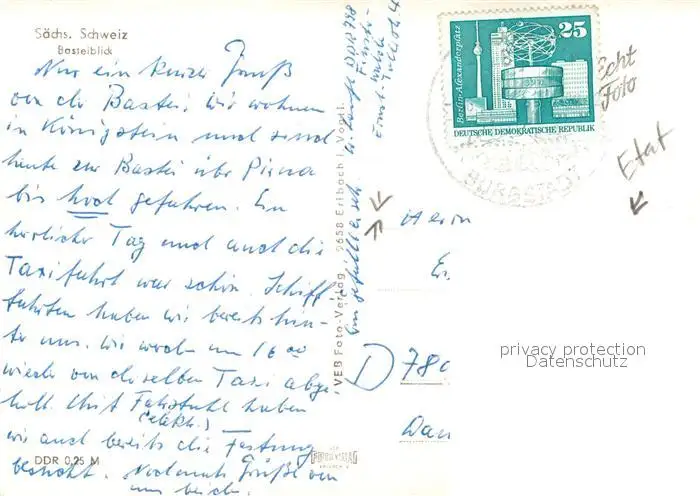 Sächs. Schweiz
Basteiblick
Nur ein kurzer Gruß
von der Bastei. Wir wohnen
in Königstein und sind
heute zur Bastei über Pirna
bis hoch gefahren. Ein
herrlicher Tag und auch die
Taxifahrt war schön. Schiff
fahrten haben wir bereits hin-
ter uns. Wir werden um 16 00
wieder von derselben Taxi abge
holt. Mit Fahrstuhl haben
(elektr.)
wir auch bereits die Festung
besucht. Nochmals Grüße von
uns beiden.
DDR 0,25 M
VEB Foto-Verlag 9658 Erlbach i. Vogtl.
DDR
Berlin-Alexanderplatz
25
DEUTSCHE DEMOKRATISCHE REPUBLIK
Echt
Foto
Etat
Herrn
D 780
privacy protection
Datenschutz